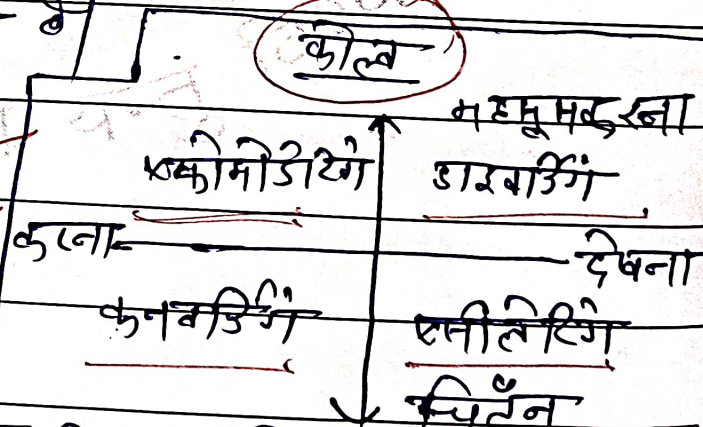 कोल्ब
महसूस करना
एकोमोडेटिंग डाइवर्जिंग
करना देखना
कनवर्जिंग एसीलेटिंग
चिंतन